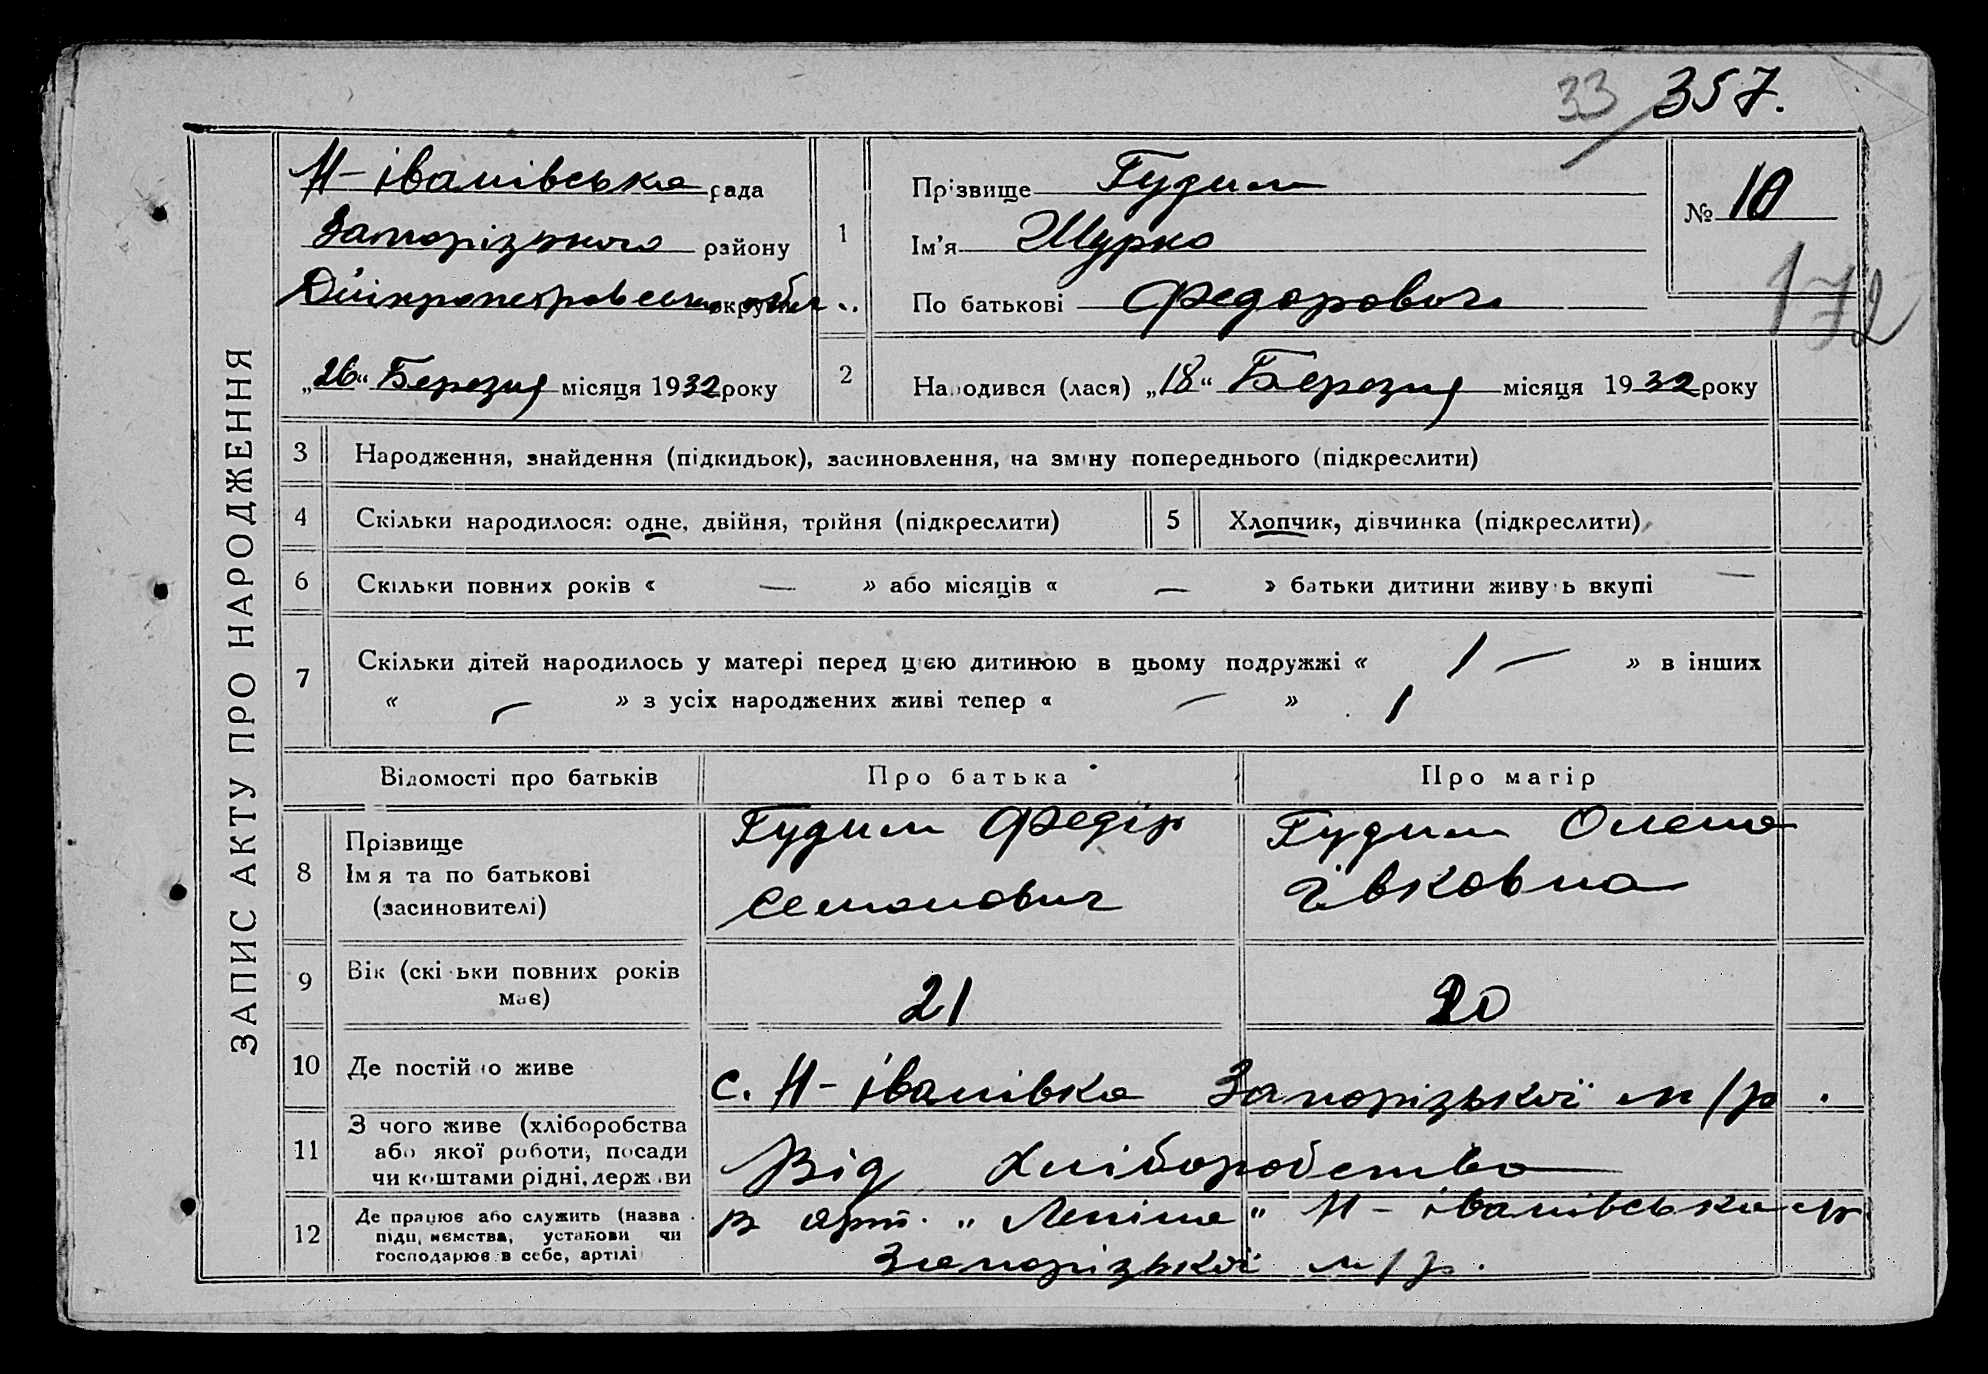 33 / 357.
Н-іванівська рада
Запорізького району
Дніпропетровськ округи обл.
„26“ Березня місяця 1932 року
1
Прізвище Гудим
Ім’я Шурко
По батькові Федорович
№ 10
172
2
Народився (лася) „18“ Березня місяця 1932 року
ЗАПИС АКТУ ПРО НАРОДЖЕННЯ
3 Народження, знайдення (підкидьок), засиновлення, на зміну попереднього (підкреслити)
4 Скільки народилося: одне, двійня, трійня (підкреслити) 5 Хлопчик, дівчинка (підкреслити)
6 Скільки повних років « — » або місяців « — » батьки дитини живуть вкупі —
7 Скільки дітей народилось у матері перед цією дитиною в цьому подружжі « 1 — » в інших
« — » з усіх народжених живі тепер « — » 1
Відомості про батьків Про батька Про матір
8 Прізвище
Імя та по батькові
(засиновителі)
Гудим Федір
Семенович
Гудим Олена
Ївковна
9 Вік (скільки повних років
має)
21 20
10 Де постійно живе
с. Н-іванівка Запорізької м/р.
11 З чого живе (хліборобства
або якої роботи, посади
чи коштами рідні, держави
Від Хліборобства
12 Де працює або служить (назва
підприємства, установи чи
господарює в себе, артілі
в арт. „Леніна“ Н-іванівська с/р.
Запорізької м/р.